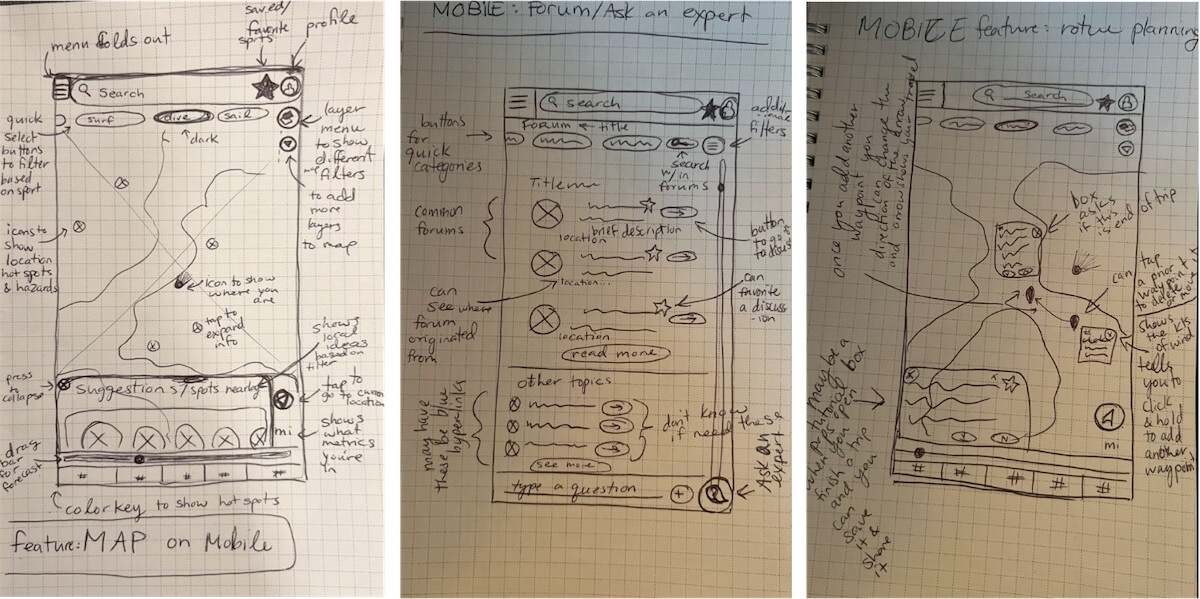 menu folds out
saved/
favorite
spots
profile
Search
quick
select
buttons
to filter
based
on sport
surf
dive
sail
dark
layer
menu
to show
different
map filters
to add
more
layers
to map
icons to
show
location
hot spots
& hazards
icon to show
where you
are
tap to
expand
info
shows
local
ideas
based on
filter
press
to
collapse
Suggestions/spots nearby
tap to
go to current
location
mi
shows
what
metrics
you're
in
drag
bar
for
forecast
# # # #
color key to show hot spots
feature: MAP on Mobile
MOBILE: Forum/Ask an expert
Search
buttons
for
quick
categories
Forum ← title
filters
search
w/in
forums
Title
common
forums
brief description
location
button
to go
to discuss
location...
can
see where
forum
originated
from
can
favorite
a discuss
-ion
location
read more
other topics
may have
these be blue
hyperlinks
don't know
if need these
see more
type a question
+
Ask an
expert
MOBILE feature: rotue planning
Search
once you add another
waypoint you
can change the
direction of the arrow
and arrow shows your travel
box
asks
if this
is end of trip
can
tap
a prior
waypoint
to delete
or move
shows
the kts
of wind
tells
you to
click
& hold
to add
another
waypoint
mi
maybe a
tutorial box
when pops up
finish you pen
and a trip
can you
save
it &
share
it
# # # # #